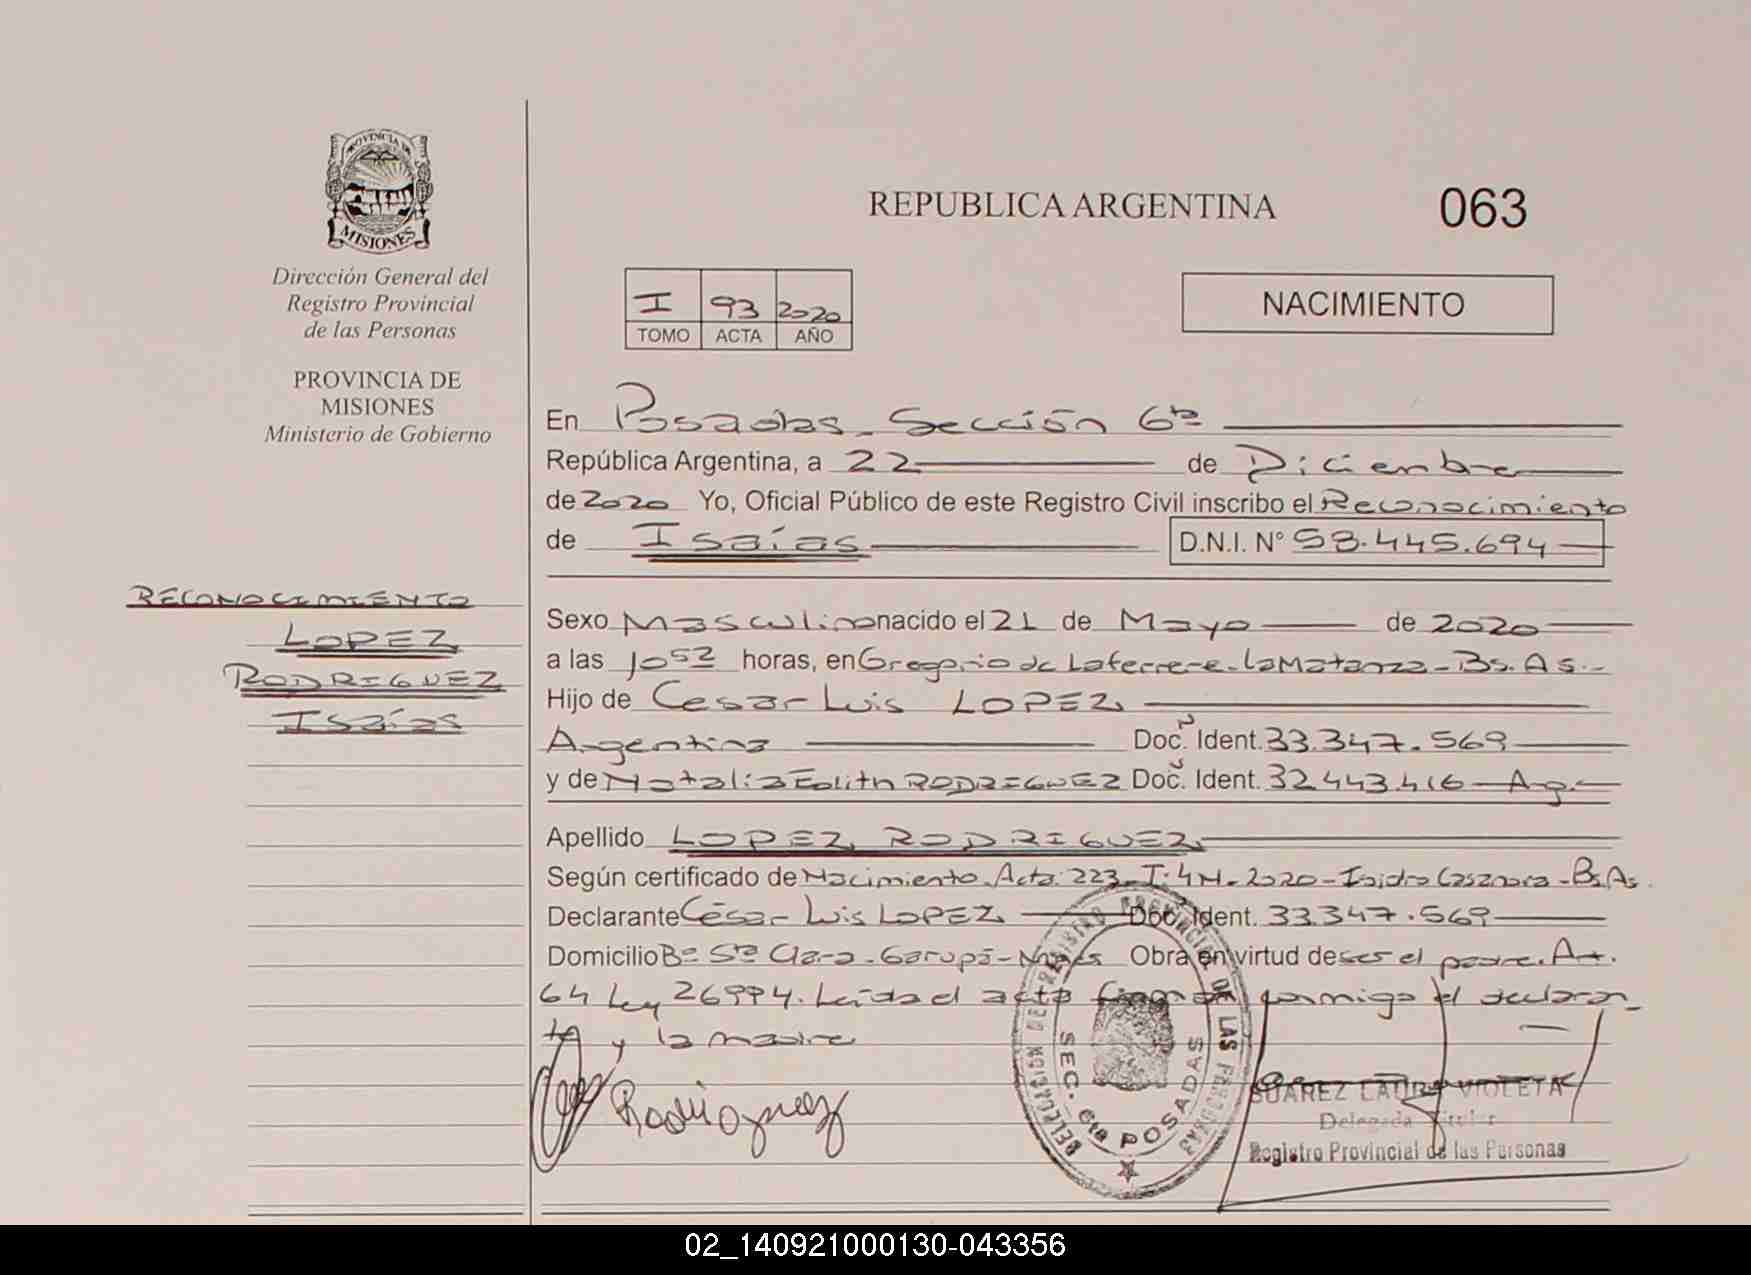 PROVINCIA DE
MISIONES
Dirección General del
Registro Provincial
de las Personas
PROVINCIA DE
MISIONES
Ministerio de Gobierno
REPUBLICA ARGENTINA
063
I 93 2020
TOMO ACTA AÑO
NACIMIENTO
En Posadas - Sección 6ta
República Argentina, a 22 de Diciembre
de 2020 Yo, Oficial Público de este Registro Civil inscribo el Reconocimiento
de Isaías D.N.I. N° 58.445.694
RECONOCIMIENTO
LOPEZ
RODRIGUEZ
Isaías
Sexo Masculino nacido el 21 de Mayo de 2020
a las 10 52 horas, en Gregorio de Laferrere - La Matanza - Bs. As. -
Hijo de Cesar Luis LOPEZ
Argentina Doc. Ident. 33.347.569
y de Natalia Edith RODRIGUEZ Doc. Ident. 32.443.416 - Arg. -
Apellido LOPEZ RODRIGUEZ
Según certificado de Nacimiento Acta: 223 - T: 4M - 2020 - Isidro Casanova - Bs. As.
Declarante César Luis LOPEZ Doc. Ident. 33.347.569
Domicilio B° Sta Clara - Garupá - Mnes Obra en virtud de ser el padre. Art.
64 Ley 26994. Leída el acta firman conmigo el declaran_
te y la madre
Rodriguez
DELEGACION DE REGISTRO PROVINCIAL DE LAS PERSONAS
SEC. 6ta POSADAS
SUAREZ LAURA VIOLETA
Delegada Titular
Registro Provincial de las Personas
02_140921000130-043356